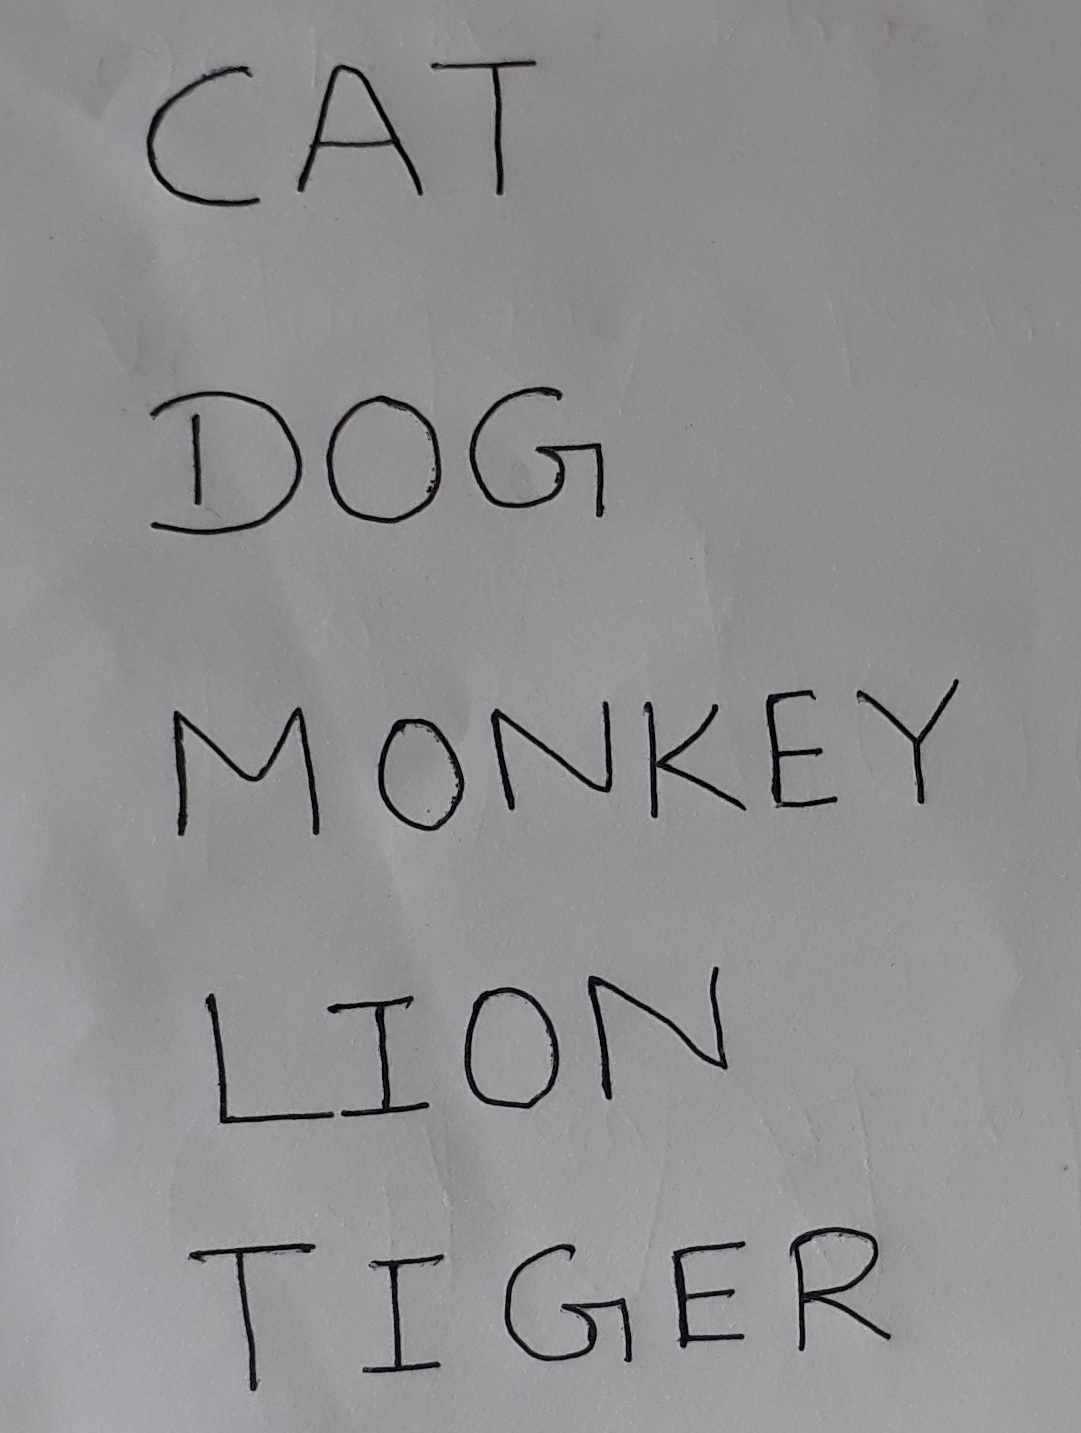 CAT
DOG
MONKEY
LION
TIGER